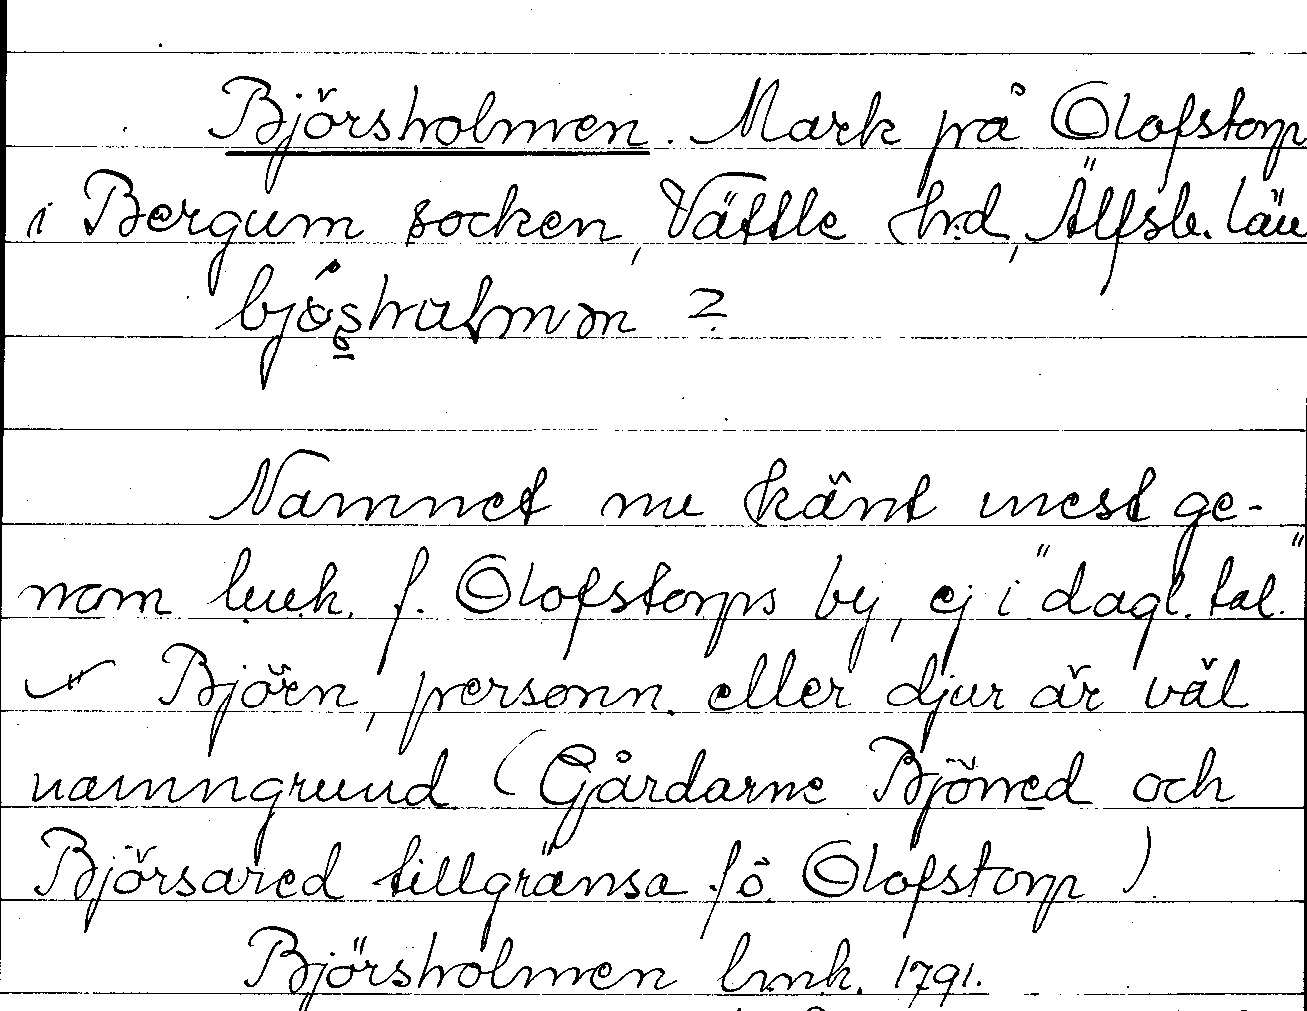 Björsholmen. Mark på Olofstorp
i Bergum socken, Vättle hrd, Älfsb. län
Namnet nu känt mest ge-
nom lmk. f. Olofstorps by, ej i "dagl. tal."
Björn, personn. eller djur är väl
namngrund (Gårdarne Björred och
Björsared tillgränsa fö. Olofstorp).
Björsholmen lmk. 1791.